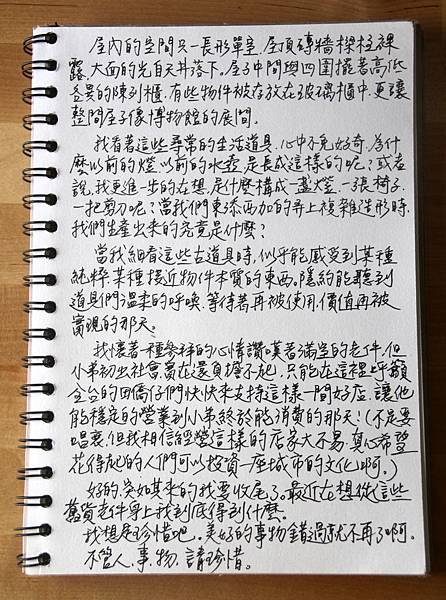 屋內的空間只一長形單室，屋頂磚牆樑柱裸
露，大面的光自天井落下。屋子中間與四圍擺著高低
各異的陳列櫃，有些物件被存放在玻璃櫃中，更讓
整間屋子像博物館的展間。
我看著這些尋常的生活道具，心中不免好奇，為什
麼以前的燈以前的水壺是長成這樣的呢？或者
說，我更進一步的在想，是什麼構成一盞燈、一張椅子、
一把剪刀呢？當我們東添西加的弄上複雜造形時，
我們生產出來的究竟是什麼？
當我細看這些古道具時，似乎能感受到某種
純粹，某種接近物件本質的東西。隱約能聽到
道具們溫柔的呼喚，等待著再被使用，價值再被
實現的那天。
我懷著一種參拜的心情讚嘆著滿室的老件，但
小弟初出社會實在還負擔不起，只能在這裡上呼籲
全台的田僑仔們快快來支持這樣一間好店，讓他
能穩定的營業到小弟終於能消費的那天！（不是要
唱衰，但我相信經營這樣的店家大不易，真心希望
花得起的人們可以投資一座城市的文化啊。）
好的，突如其來的我要收尾了。最近在想從這些
舊貨老件身上我到底得到什麼。
我想是珍惜吧。美好的事物錯過就不再了啊。
不管人、事、物，請珍惜。